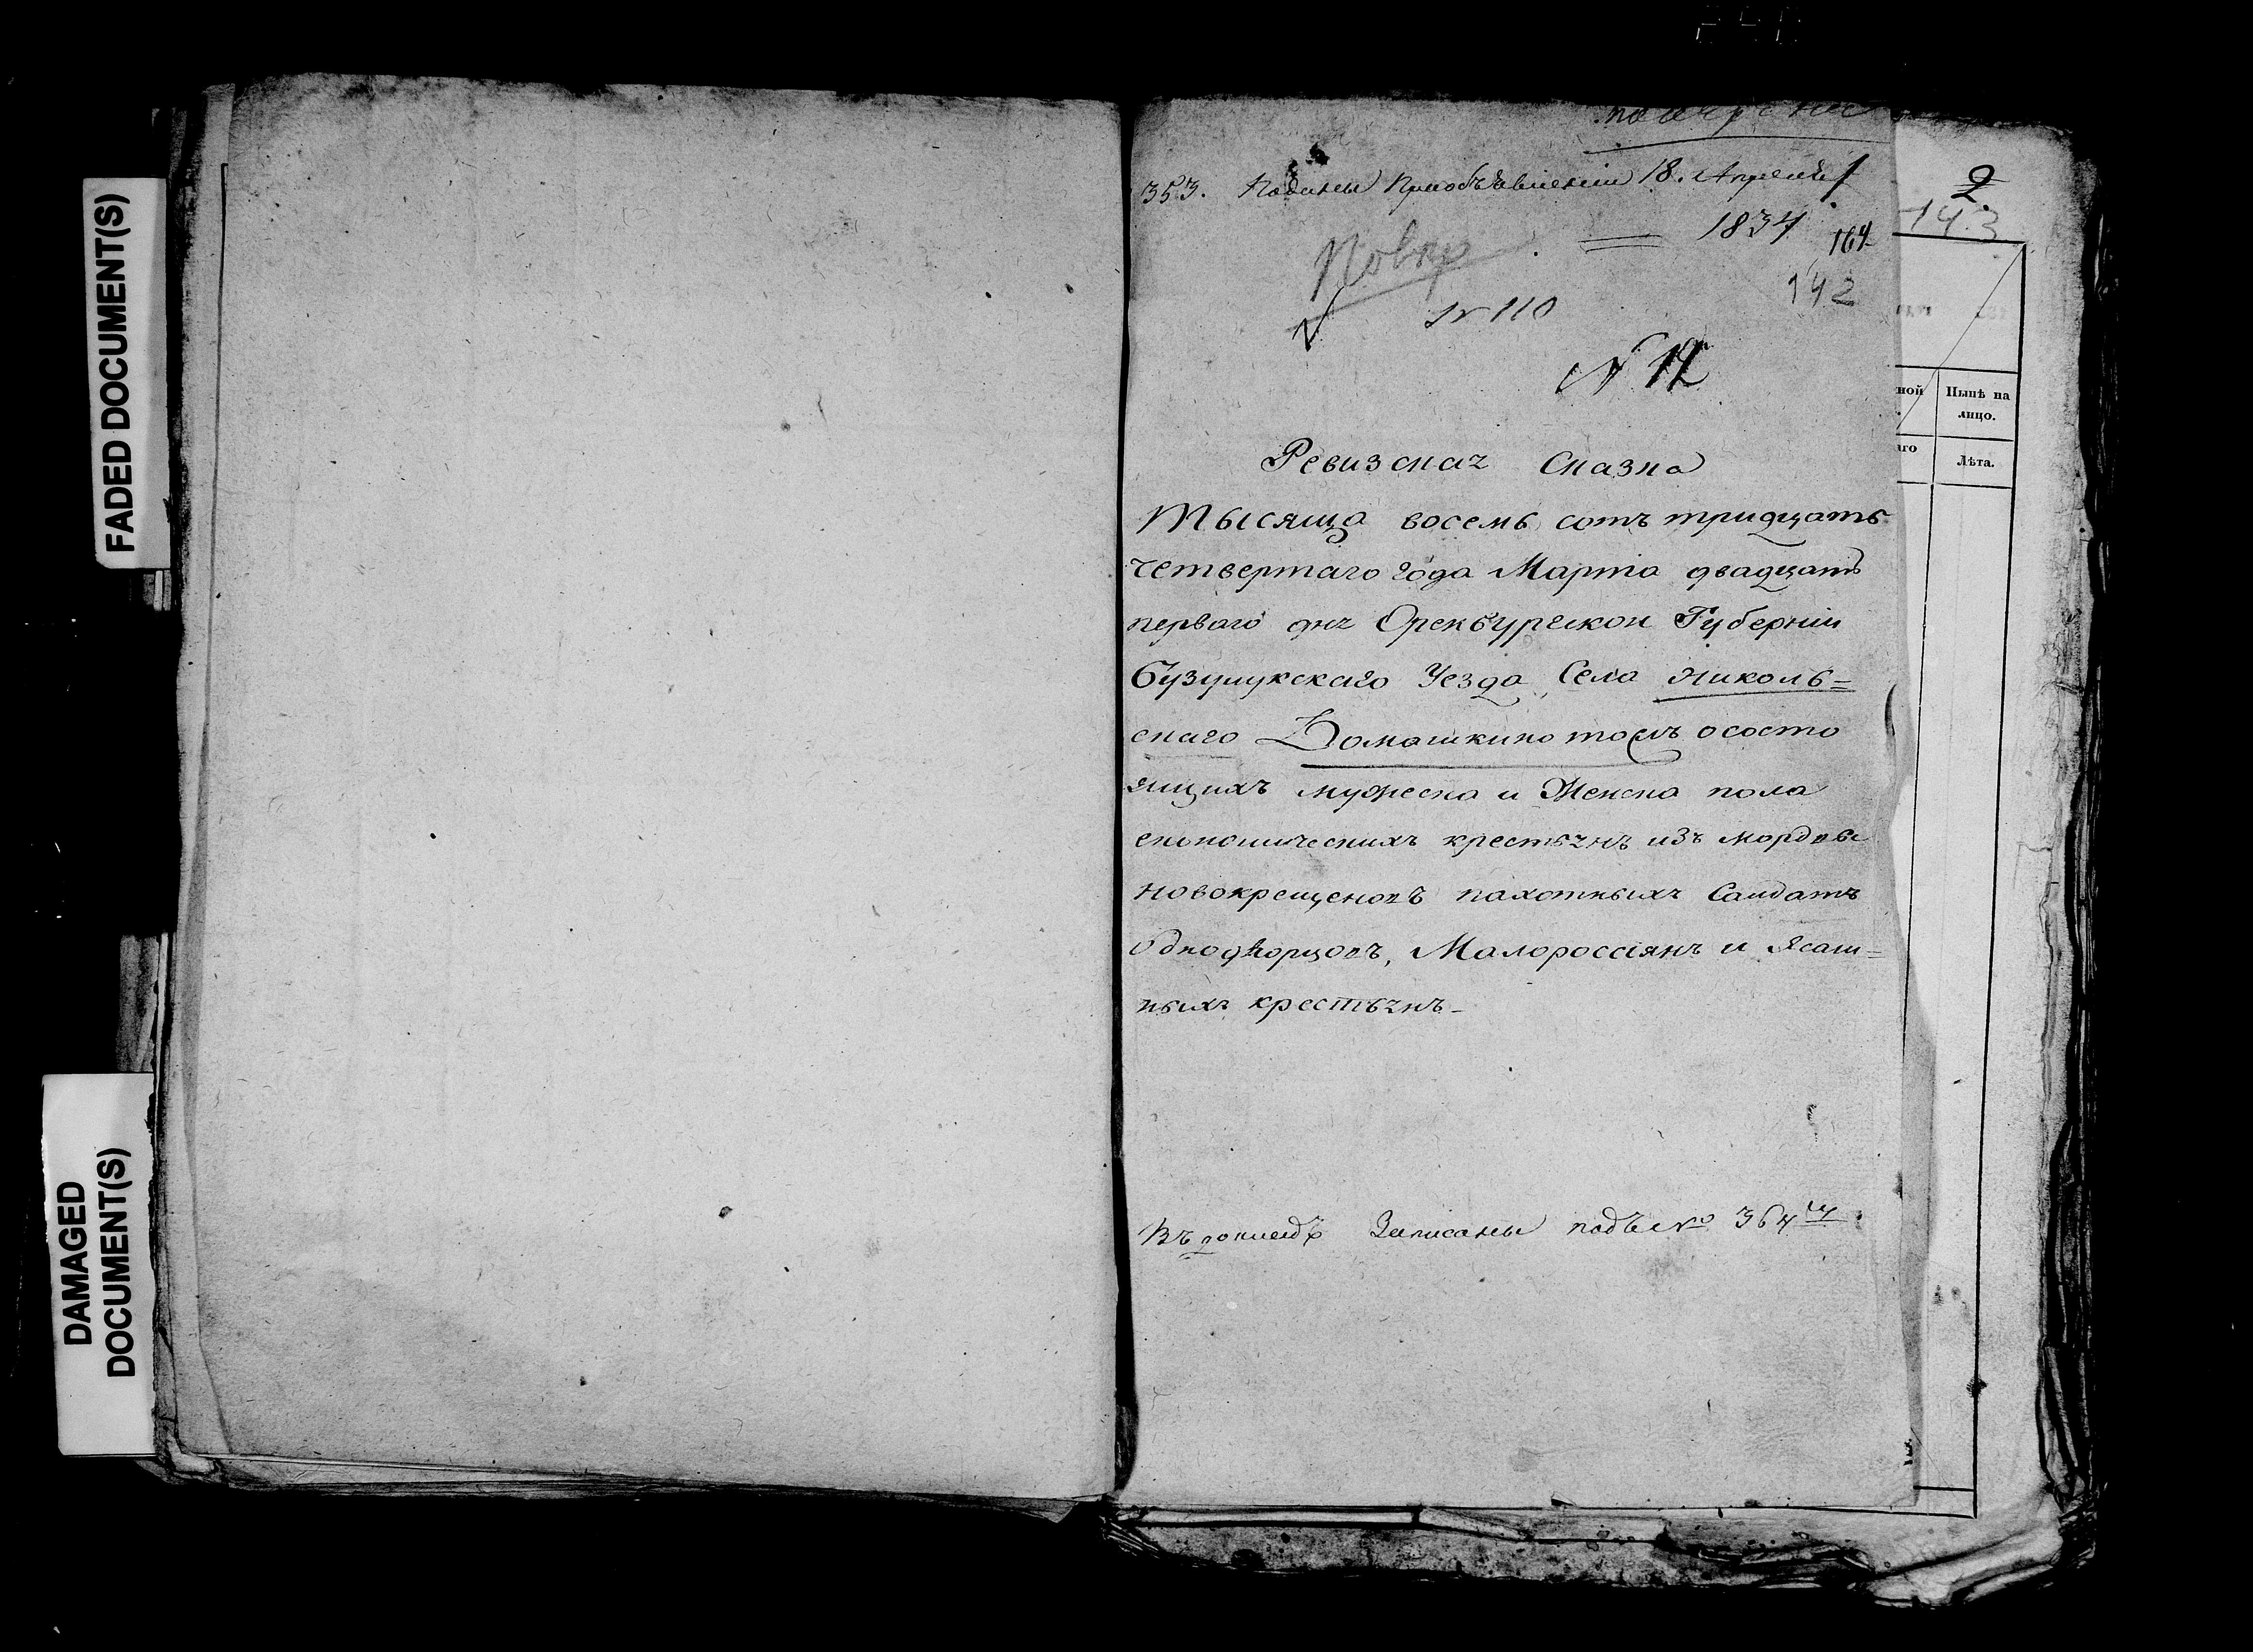 FADED DOCUMENT(S)
DAMAGED
DOCUMENT(S)
353. Поданы при объявлении 18. Апреля
1834
164
142
Повер
№ 110
№ 12
Ревизская Сказка
Тысяща восемь сотъ тридцать
четвертаго года Марта двадцать
перваго дня Оренбургской Губернии
Бузулукскаго Уезда Села Николь=
скаго Домашкино тожъ о состо
ящихъ мужеска и Женска пола
економическихъ крестьянъ изъ мордвы
новокрещеновъ пахотныхъ Салдатъ
Однодворцовъ, Малороссіянъ и Ясаш=
ныхъ крестьянъ
Записаны подъ № 364
2
143
ной
Нынѣ на
лицо.
аго
Лѣта.